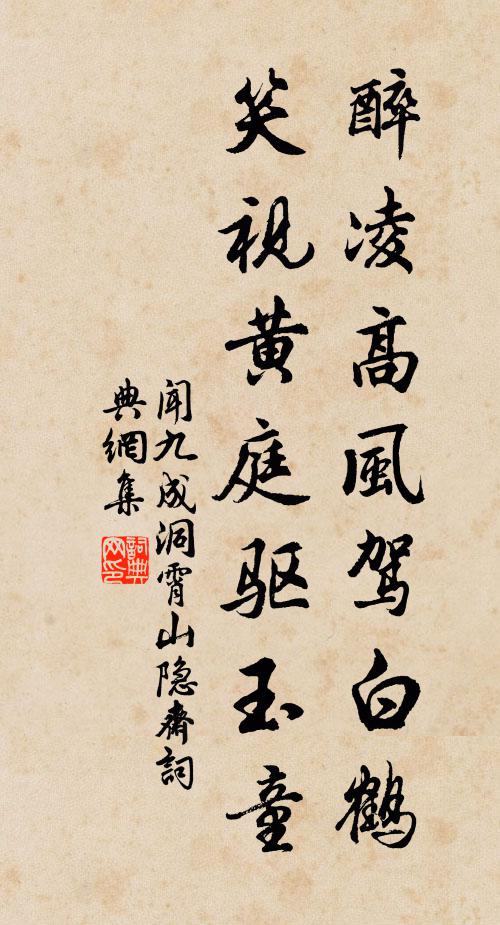 醉凌高風駕白鶴
笑視黄庭驱玉童
聞九成洞霄山隐齋詞
典網集
詞典網印